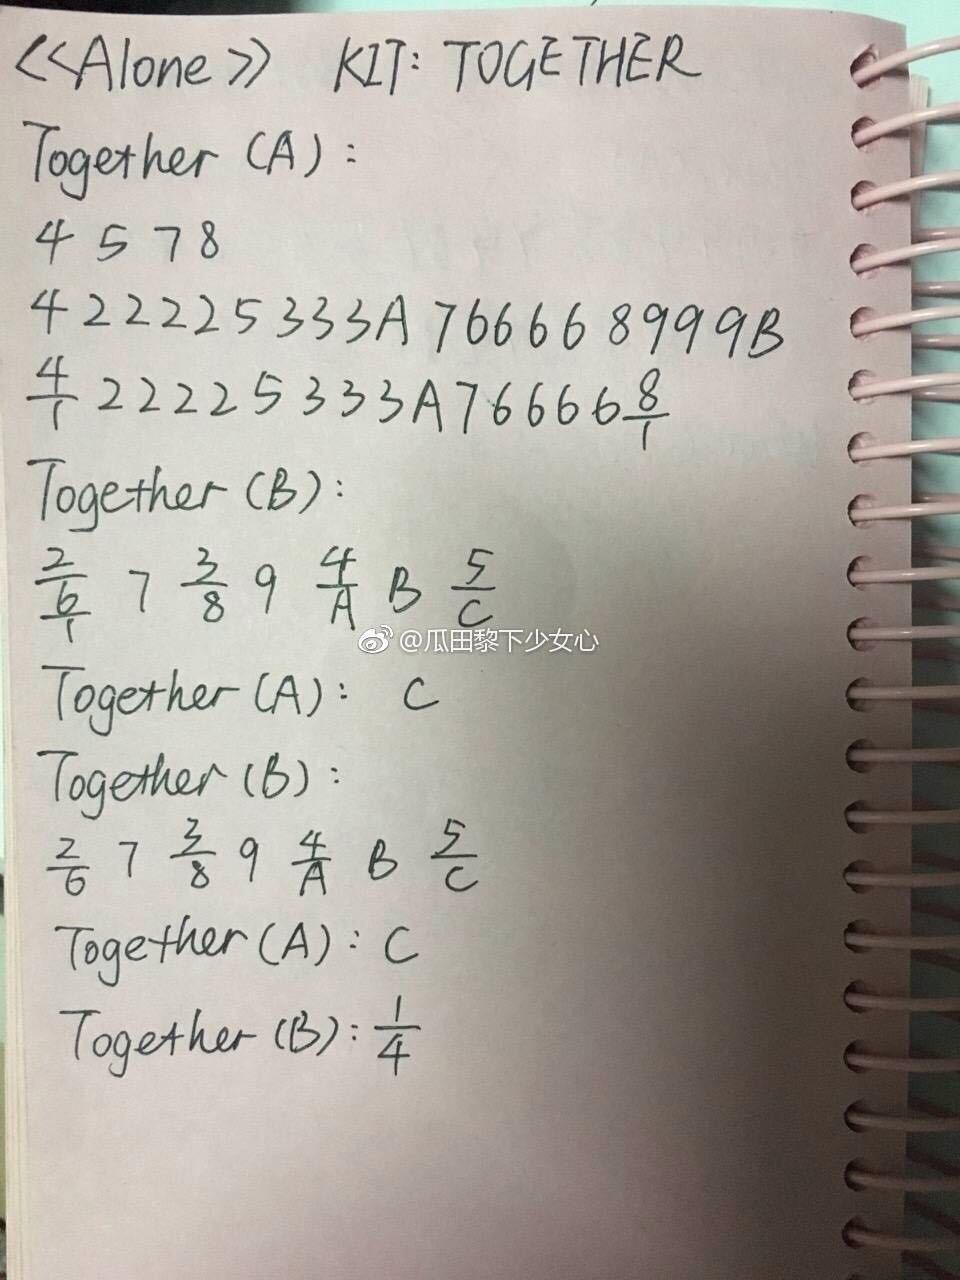 <<Alone>> KIT: TOGETHER
Together (A):
4 5 7 8
4 2 2 2 2 5 3 3 3 A 7 6 6 6 6 8 9 9 9 B
4/1 2 2 2 2 5 3 3 3 A 7 6 6 6 6 8/1
Together (B):
2/6/1 7 3/8 9 4/A B 5/C
@瓜田黎下少女心
Together (A): C
Together (B):
2/6 7 3/8 9 4/A B 5/C
Together (A): C
Together (B): 1/4